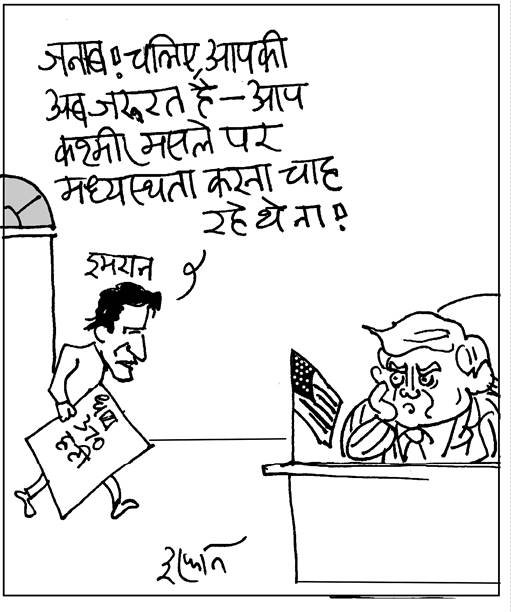 जनाब! चलिए, आपकी
अब जरूरत है - आप
कश्मीर मसले पर
मध्यस्थता करना चाह
रहे थे ना!
इमरान
धारा
370
हटी
इरफान